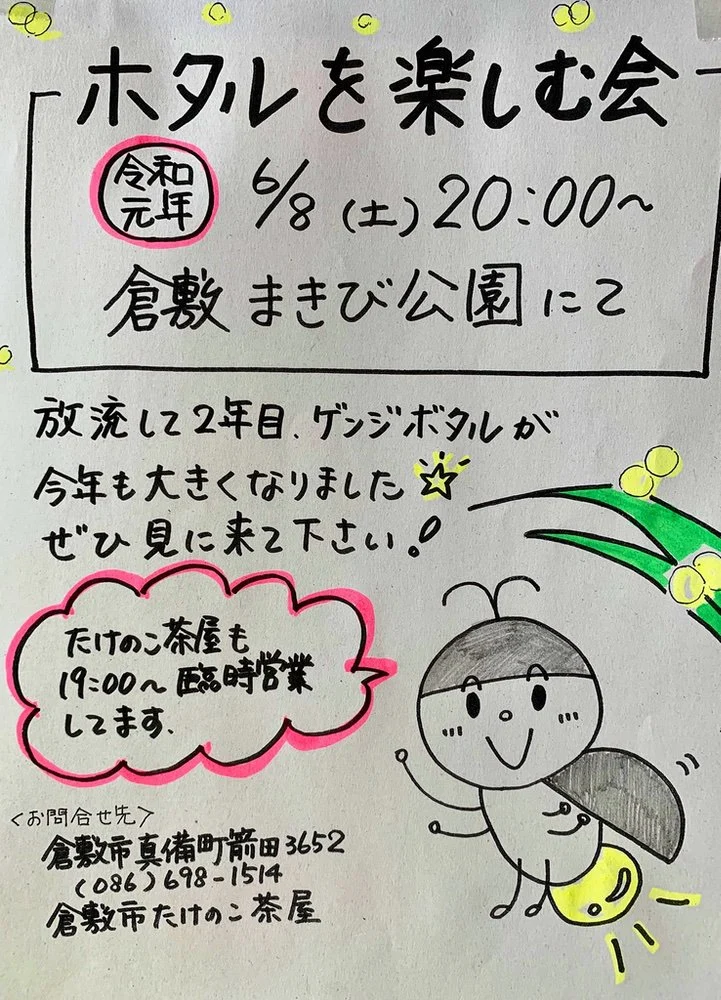 ホタルを楽しむ会
令和
元年
6/8(土)20:00~
倉敷 まきび公園にて
放流して2年目、ゲンジボタルが
今年も大きくなりました☆
ぜひ見に来て下さい!
たけのこ茶屋も
19:00~臨時営業
してます.
<お問合せ先>
倉敷市真備町箭田3652
(086)698-1514
倉敷市たけのこ茶屋